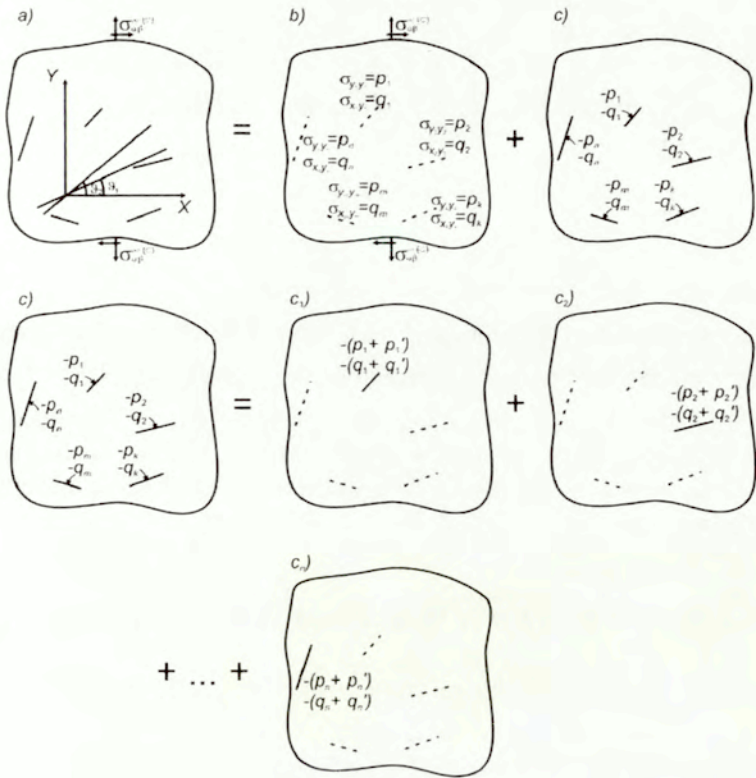 a)
Y
X
=
b)
σy₁y₁=p₁
σx₁y₁=q₁
σy₂y₂=p₂
σx₂y₂=q₂
σyₙyₙ=pₙ
σxₙyₙ=qₙ
σyₘyₘ=pₘ
σxₘyₘ=qₘ
σyₖyₖ=pₖ
σxₖyₖ=qₖ
+
c)
-p₁
-q₁
-pₙ
-qₙ
-p₂
-q₂
-pₘ
-qₘ
-pₖ
-qₖ
c)
-p₁
-q₁
-pₙ
-qₙ
-p₂
-q₂
-pₘ
-qₘ
-pₖ
-qₖ
=
c₁)
-(p₁+ p₁')
-(q₁+ q₁')
+
c₂)
-(p₂+ p₂')
-(q₂+ q₂')
+ ... +
cₙ)
-(pₙ+ pₙ')
-(qₙ+ qₙ')